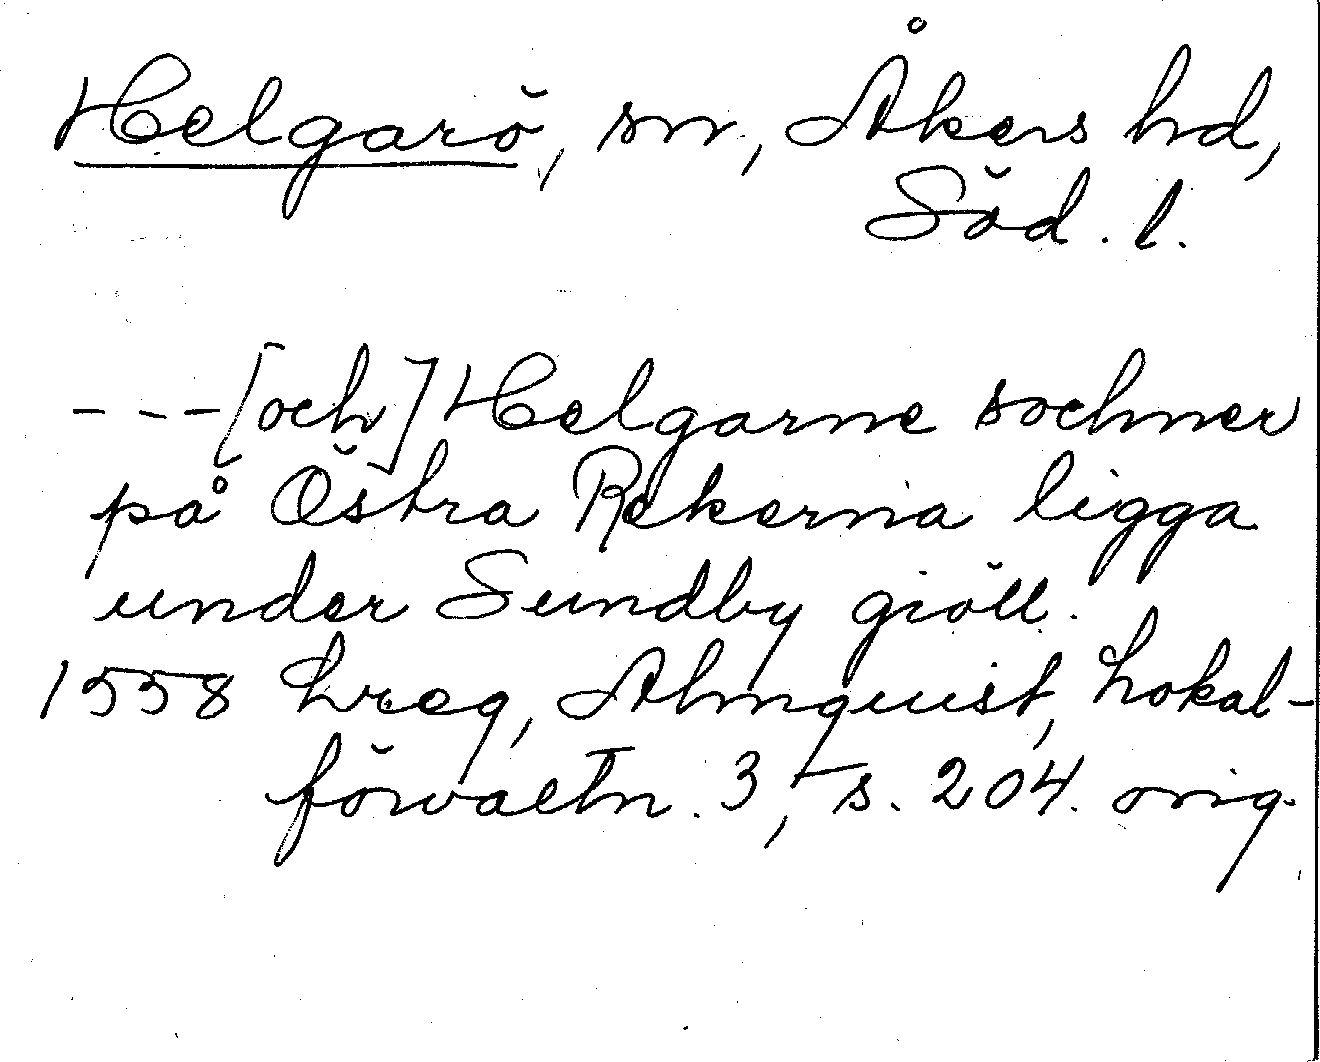 Helgarö, sn, Åkers hd,
Söd. l.
---[och] Helgarne sochner
på Östra Rekerna ligga
under Sundby giöll.
1558 Lreg, Almquist, Lokal-
förvaltn. 3, s. 204. orig.